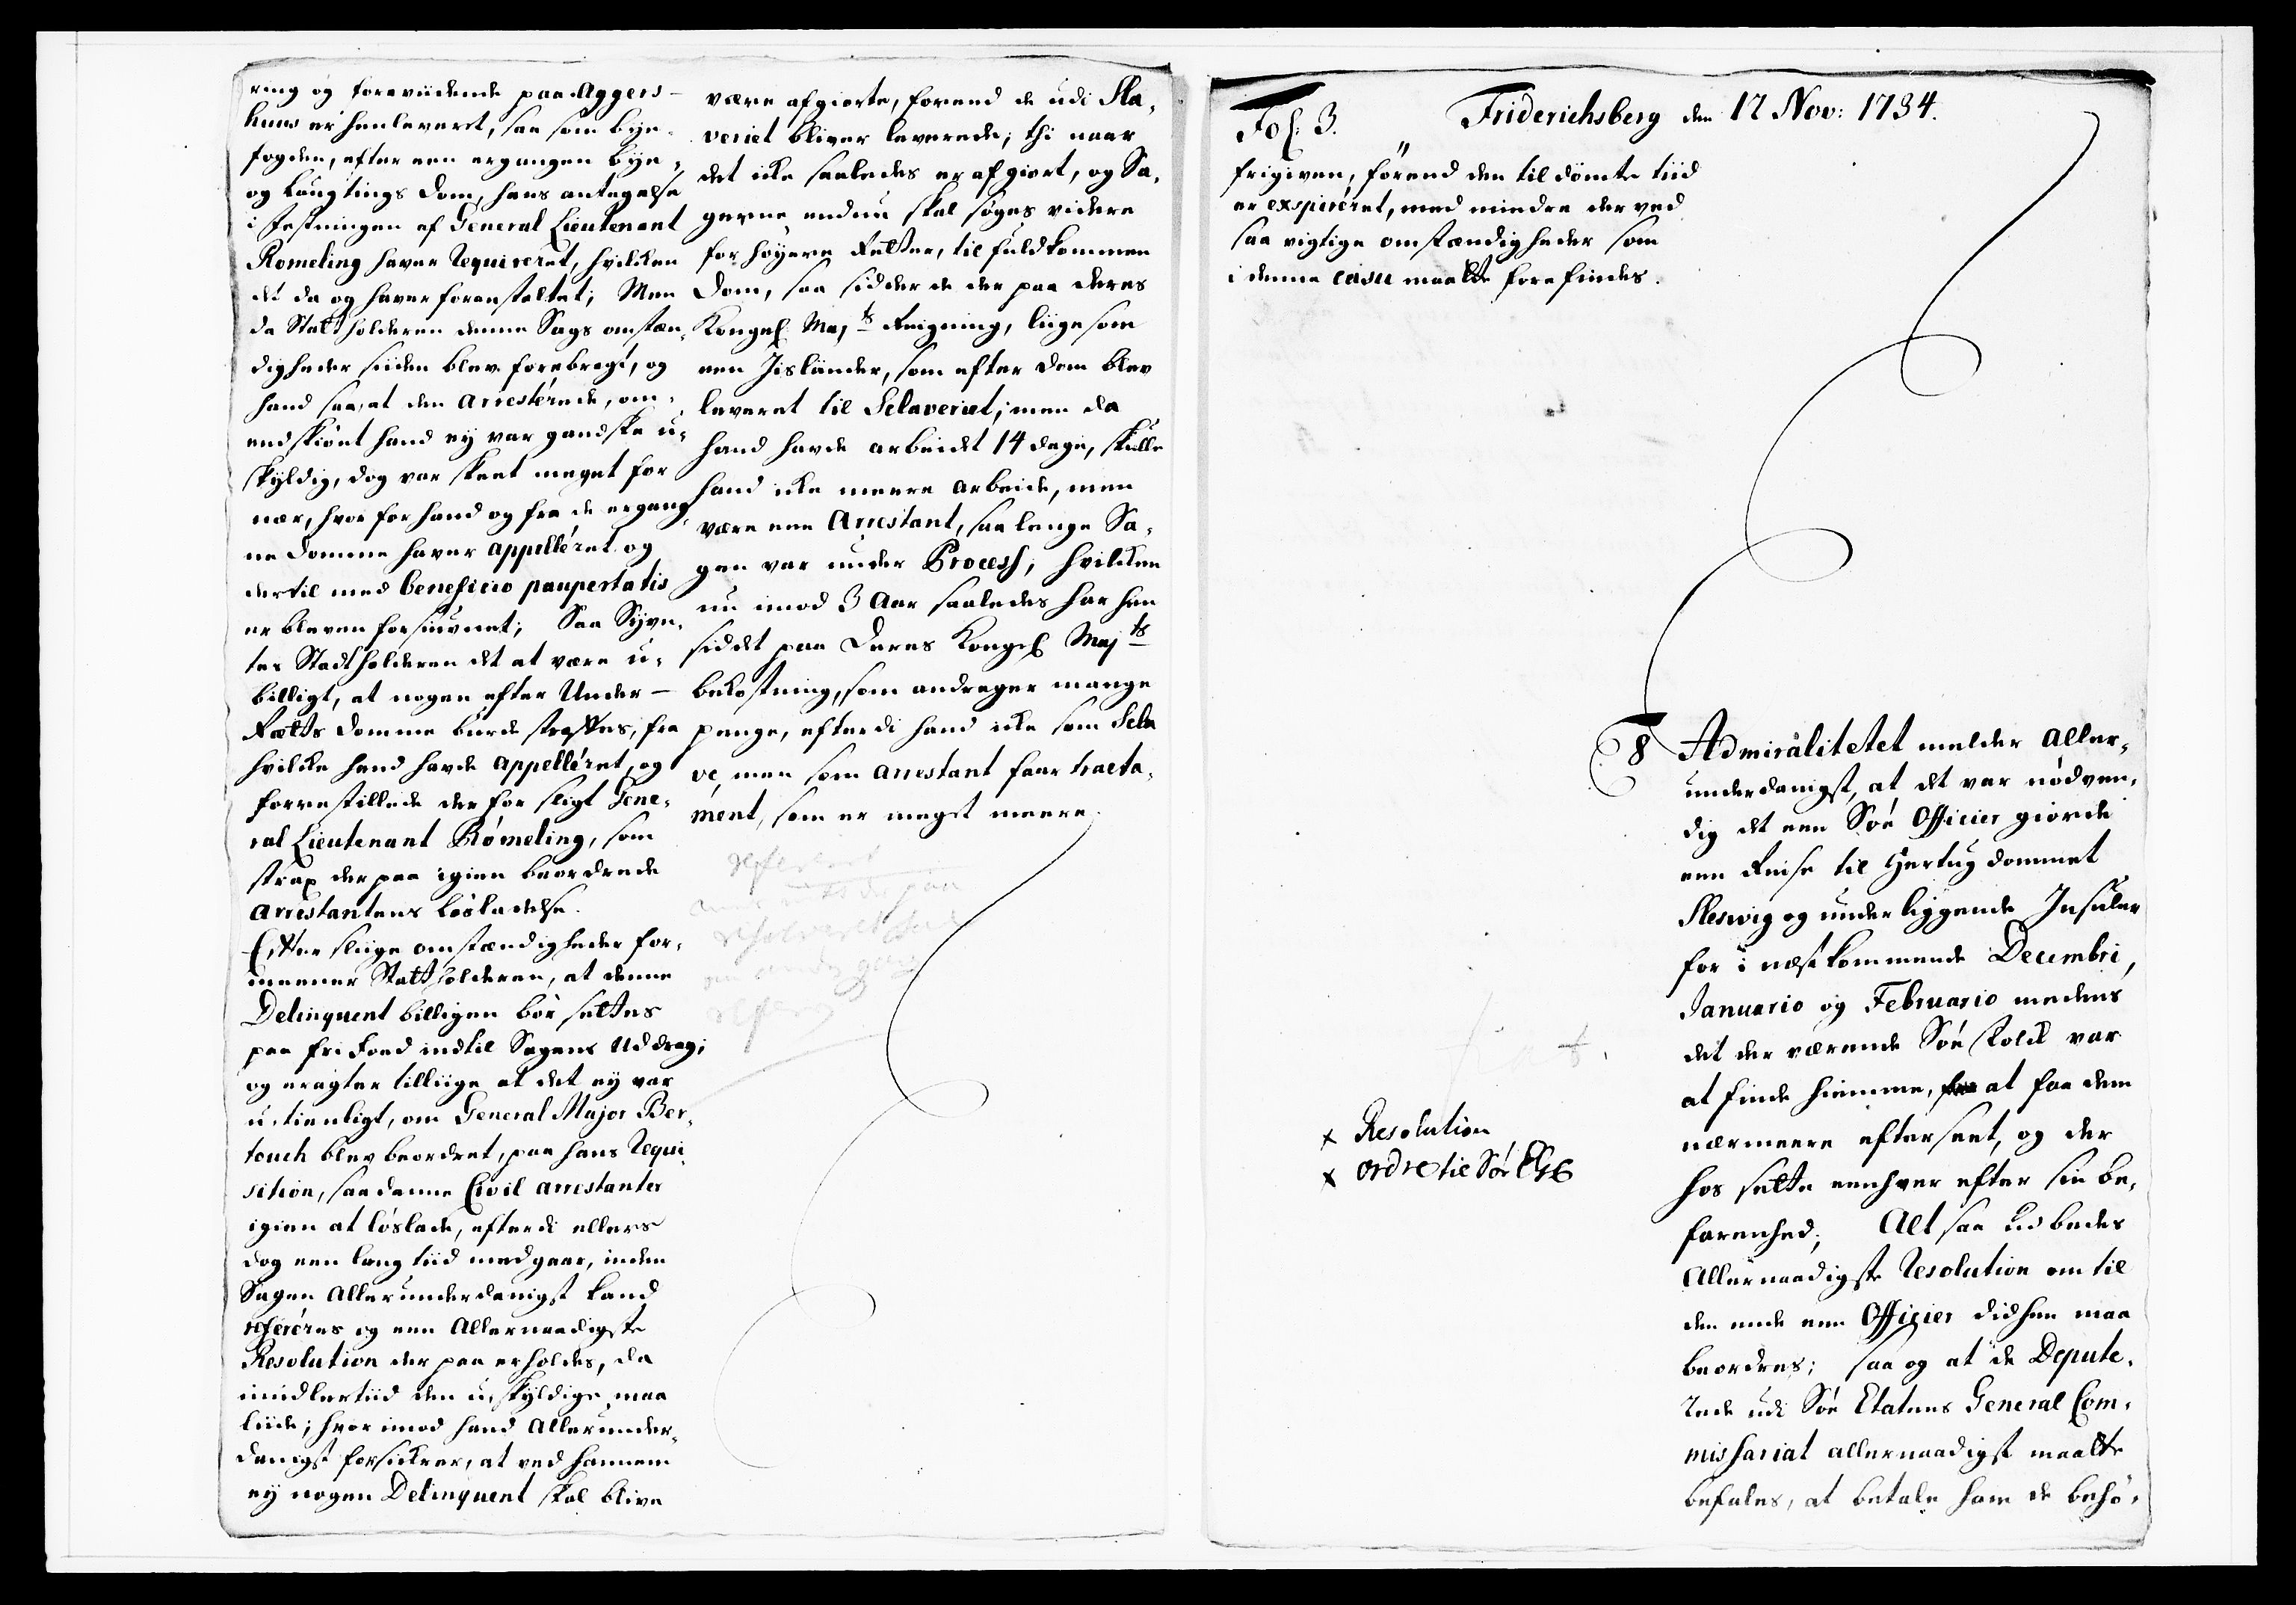 ring og foreviidende paa Aggers-
huus er henleveret, saa som bye-
fogden, efter een ergangen bye-
og Laugtings Dom, hans antagelse
i Festningen af General Lieutenant
Romeling haver requireret, hvilcken
det da og haver foranstaltet; Men
da Statholderen denne Sags omstæn-
digheder siiden blev forebragt, og
hand saa, at den Arresterede, om-
endskiönt hand ey var gandske u-
skyldig, dog var skeet meget for
nær, hvorfor hand og fra de ergang
ne Domme haver appelléret og
dertil med beneficio paupertatis
er bleven forsiunet; Saa Syn-
tes Stadtholderen det at være u-
billigt, at nogen efter Under-
Rætts Domme burde straffes, fra
hvilcke hand havde appelléret, og
forrestillede derfor sligt Gene-
ral Lieutenant Römeling, som
strax derpaa igien beordrede
Arrestantens Lösladelse.
Efter sliige omstændigheder for-
meener Statholderen, at denne
Delinquent billigen bör settes
paa fri Foed indtil Sagens Uddrag;
og eragter tilliige at det ey var
u-tienligt, om General Major Ber-
touch blev beordret, paa hans requi
sition, saadanne Civil arrestanter
igien at löslade, efterdi ellers
dog een lang tiid medgaar, inden
Sagen Allerunderdanigst kand
referéres og een Allernaadigste
Resolution derpaa erholdes, da
imidlertiid den u-skyldige maa
liide; hvorimod hand Allerunder-
danigst forsickrer, at ved hannem
ey nogen Delinquent skal blive
være afgiorte, forend de udi Sla-
veriet bliver leverede; thi naar
det icke saaledes er afgiort, og Sa-
gerne endnu skal söges videre
for höyere Retter, til fuldkommen
Dom, saa sidder de der paa deres
Kongel Majts Reigning, liigesom
een Jislænder, som efter Dom blev
leveret til Sclaveriet; men da
hand havde arbeidet 14 dage, skulle
hand icke meere arbeide, men
være een Arrestant, saa lenge Sa-
gen var under Process, hvilcken
nu imod 3 Aar saaledes har hen
siddet paa Deres Kongel Majts
bekostning, som andrager mange
penge, efterdi hand icke som Scla
ve, men som arrestant faar tracta-
ment, som er meget meere
Fol: 3. Friderichsberg den 17 Nov: 1734.
frigiven, förend den til dömte tiid
er exspiréret, med mindre der ved
saa vigtige omstændigheder som
i denne casu maatte forefindes.
8 Admiralitetet melder aller-
underdanigst, at det var nödven-
dig det een Söe Officier giorde
een Reise til Hertugdommet
Sleswig og underliggende Insuler
for i næstkommende Decembri,
Januario og Februario medens
det derværende Söe Folck var
at finde hiemme, at faa dem
nærmeere efterseet, og der
hos sette eenhver efter sin be-
farenhed; Altsaa udbedes
Allernaadigste Resolution om til
den ende een Officier didhen maa
beordres; saa og at de Depute-
rede udi Söe Etatens General Com-
missariat allernaadigst maatte
befales, at betale ham de behö-
x Resolution
x ordre til Söe